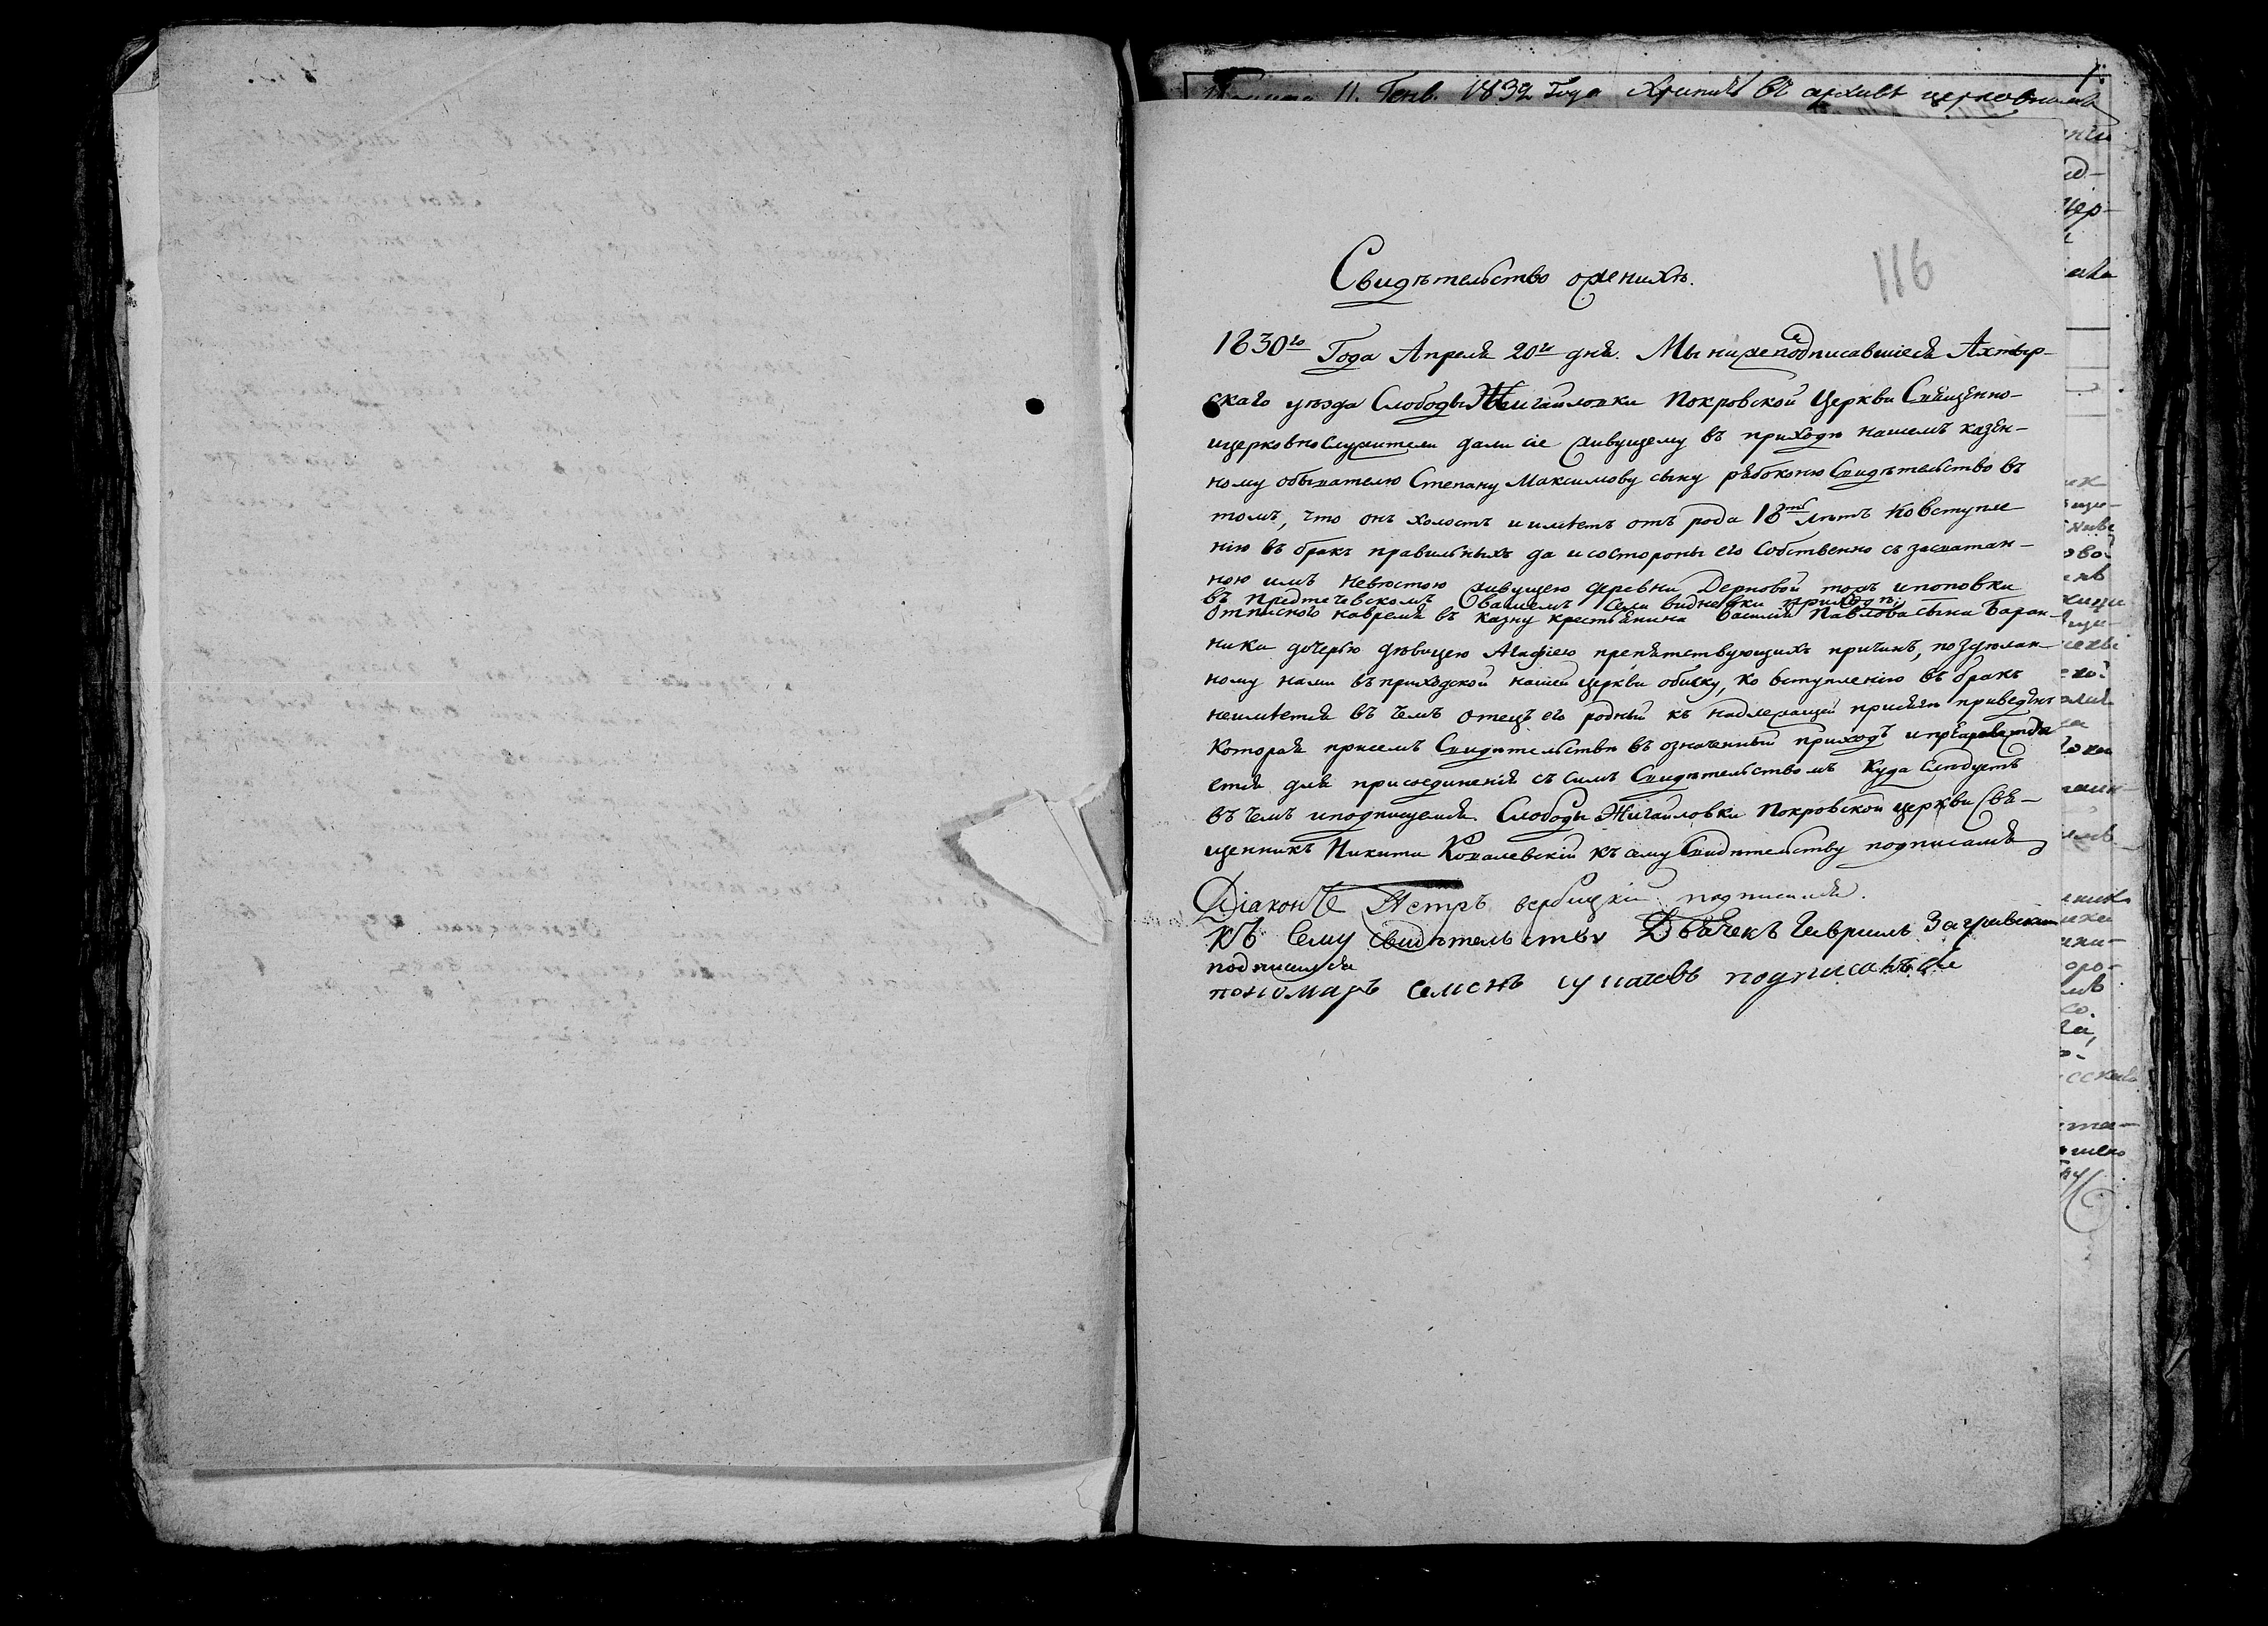 11. Генв. 1832 Года Хранить въ архивѣ церковномъ
116
Свидѣтельство о женихѣ.
1830го Года Апреля 20го дня. Мы нижеподписавшіеся Ахтыр-
скаго уѣзда Слободы Жигайловки Покровской Церкви Священно-
ицерковнослужители дали сіе живущему въ приходѣ нашемъ казен-
ному обывателю Степану Максимову сыну рябоконю Свидѣтельство въ
томъ, что онъ холостъ и имѣетъ отъ рода 18ть лѣтъ Ковступле
нію въ бракъ правильныхъ да и состороны его Собственно съ засватан-
ною имъ невѣстою живущею деревни Дерновой тожъ ипоповки
въ предтечевскомъ вашемъ Села видневки приходѣ,
отписного навремя въ казну крестьянина Василія Павлова сына Баран
ника дочерью дѣвицею Агафіею препятствующихъ причинъ, по зделан
ному нами въ приходской нашей Церкви обыску, ко вступленію въ бракъ
неимѣется въ чемъ отецъ его родный къ надлежащей присягѣ приведенъ
Которая присемъ Свидѣтельствѣ въ означенный приходъ и
ется для присоединенія съ симъ Свидѣтельствомъ Куда Слѣдуетъ
въ чемъ иподписуемся Слободы Жигайловки Покровской церкви Свя-
щенникъ Никита Ковалевскій къ сему Свидѣтельству подписался
Діаконъ Петръ вербицкій подписался.
Къ Сему свидѣтельству Дьячекъ Гавриилъ
подписался
пономарь Семенъ подписался